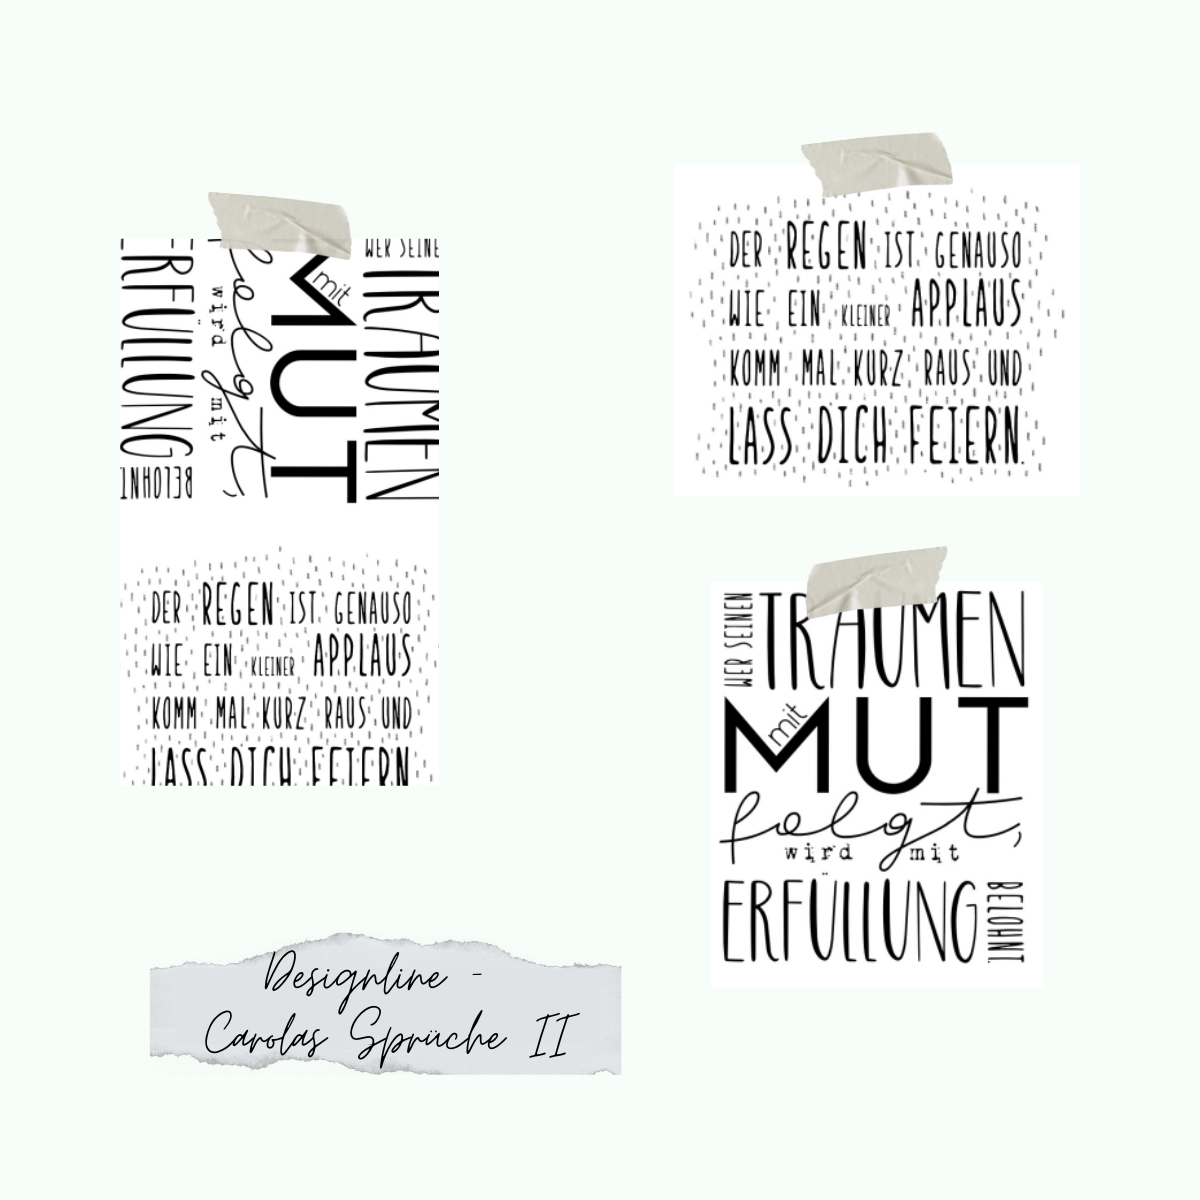 WER SEINEN
TRÄUMEN
mit
MUT
folgt,
wird mit
ERFÜLLUNG
BELOHNT.
DER REGEN IST GENAUSO
WIE EIN KLEINER APPLAUS
KOMM MAL KURZ RAUS UND
LASS DICH FEIERN
DER REGEN IST GENAUSO
WIE EIN KLEINER APPLAUS
KOMM MAL KURZ RAUS UND
LASS DICH FEIERN.
WER SEINEN
TRÄUMEN
mit
MUT
folgt,
wird mit
ERFÜLLUNG
BELOHNT.
Designline -
Carolas Sprüche II